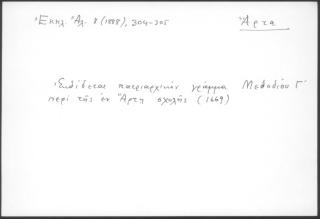 Ἐκκλ. Ἀλ. 8 (1888), 304-305
Ἄρτα
Ἐκδίδεται πατριαρχικὸν γράμμα Μεθοδίου Γ΄
περὶ τῆς ἐν Ἄρτῃ σχολῆς (1669)